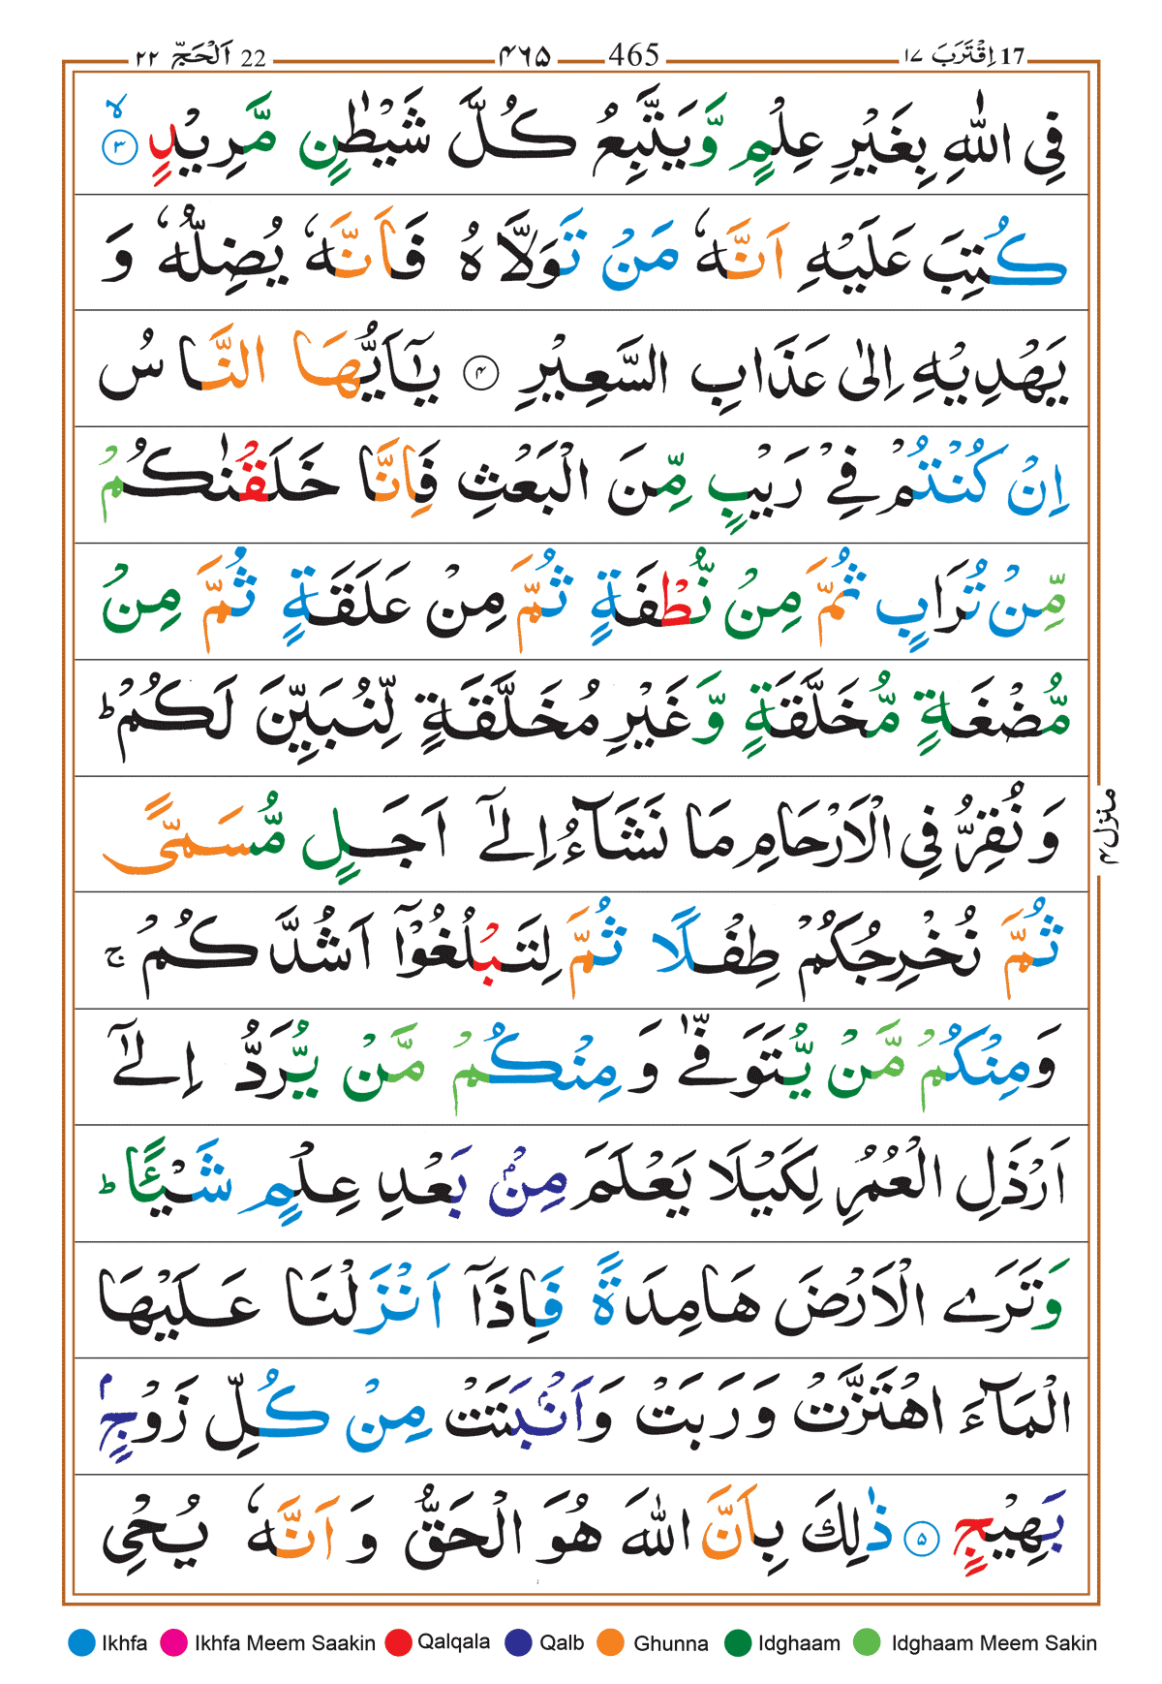 17 اِقْتَرَبَ ١٧ 465 ۴۶۵ 22 اَلْحَجّ ٢٢
فِى اللّٰهِ بِغَيْرِ عِلْمٍ وَّيَتَّبِعُ كُلَّ شَيْطٰنٍ مَّرِيْدٍ ۙ﴿۳﴾
كُتِبَ عَلَيْهِ اَنَّهٗ مَنْ تَوَلَّاهُ فَاَنَّهٗ يُضِلُّهٗ وَ
يَهْدِيْهِ اِلٰى عَذَابِ السَّعِيْرِ ﴿۴﴾ يٰۤاَيُّهَا النَّاسُ
اِنْ كُنْتُمْ فِيْ رَيْبٍ مِّنَ الْبَعْثِ فَاِنَّا خَلَقْنٰكُمْ
مِّنْ تُرَابٍ ثُمَّ مِنْ نُّطْفَةٍ ثُمَّ مِنْ عَلَقَةٍ ثُمَّ مِنْ
مُّضْغَةٍ مُّخَلَّقَةٍ وَّغَيْرِ مُخَلَّقَةٍ لِّنُبَيِّنَ لَكُمْ ؕ
وَ نُقِرُّ فِى الْاَرْحَامِ مَا نَشَآءُ اِلٰٓى اَجَلٍ مُّسَمًّى
ثُمَّ نُخْرِجُكُمْ طِفْلًا ثُمَّ لِتَبْلُغُوْۤا اَشُدَّكُمْ ۚ
وَمِنْكُمْ مَّنْ يُّتَوَفّٰى وَمِنْكُمْ مَّنْ يُّرَدُّ اِلٰٓى
اَرْذَلِ الْعُمُرِ لِكَيْلَا يَعْلَمَ مِنْۢ بَعْدِ عِلْمٍ شَيْـًٔا ؕ
وَتَرَى الْاَرْضَ هَامِدَةً فَاِذَاۤ اَنْزَلْنَا عَلَيْهَا
الْمَآءَ اهْتَزَّتْ وَرَبَتْ وَاَنْۢبَتَتْ مِنْ كُلِّ زَوْجٍۢ
بَهِيْجٍ ﴿۵﴾ ذٰلِكَ بِاَنَّ اللّٰهَ هُوَ الْحَقُّ وَاَنَّهٗ يُحْيِ
منزل ۴
Ikhfa Ikhfa Meem Saakin Qalqala Qalb Ghunna Idghaam Idghaam Meem Sakin